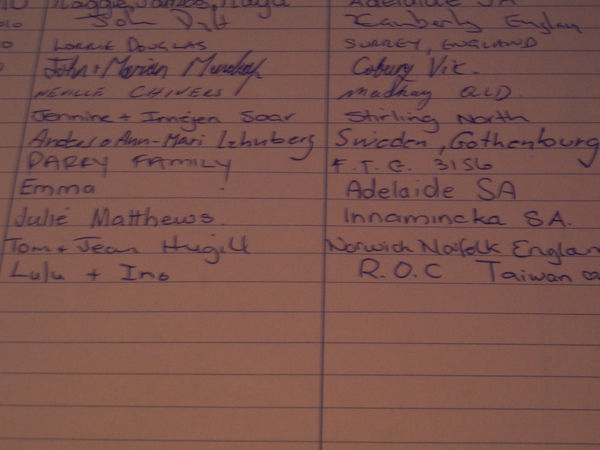 Adelaide SA
John England
LORRIE DOUGLAS SURREY, ENGLAND
John + Marian Coburg Vic.
NEVILLE CHIVERS Mackay QLD.
Jennine + Imogen Soar Stirling North
Anders o Ann-Mari Sweden, Gothenburg
FAMILY F.T.G. 3156
Emma Adelaide SA
Julie Matthews. Innamincka SA.
Tom + Jean Hugill Norwich Norfolk Englan
Lulu + Ino R.O.C Taiwan